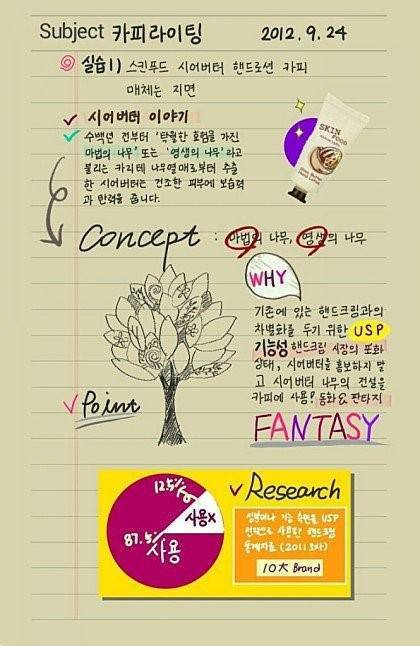 Subject 카피라이팅 2012. 9. 24
실습1) 스킨푸드 시어버터 핸드로션 카피
매체는 지면
시어버터 이야기
수백년 전부터 '탁월한 효험을 가진
마법의 나무' 또는 '영생의 나무'라고
불리는 카리테 나무열매로부터 추출
한 시어버터는 건조한 피부에 보습력
과 탄력을 줍니다.
SKIN
FOOD
Concept : 마법의 나무, 영생의 나무
WHY
기존에 있는 핸드크림과의
차별화를 두기 위한 USP
기능성 핸드크림 시장의 포화
상태, 시어버터를 홍보하지 말
고 시어버터 나무의 전설을
카피에 사용? 동화 & 판타지
Point
FANTASY
12.5%
사용X
87.5%
사용
Research
성분이나 기능 측면을 USP
전략으로 사용한 핸드크림
통계자료 (2011 조사)
10大 Brand